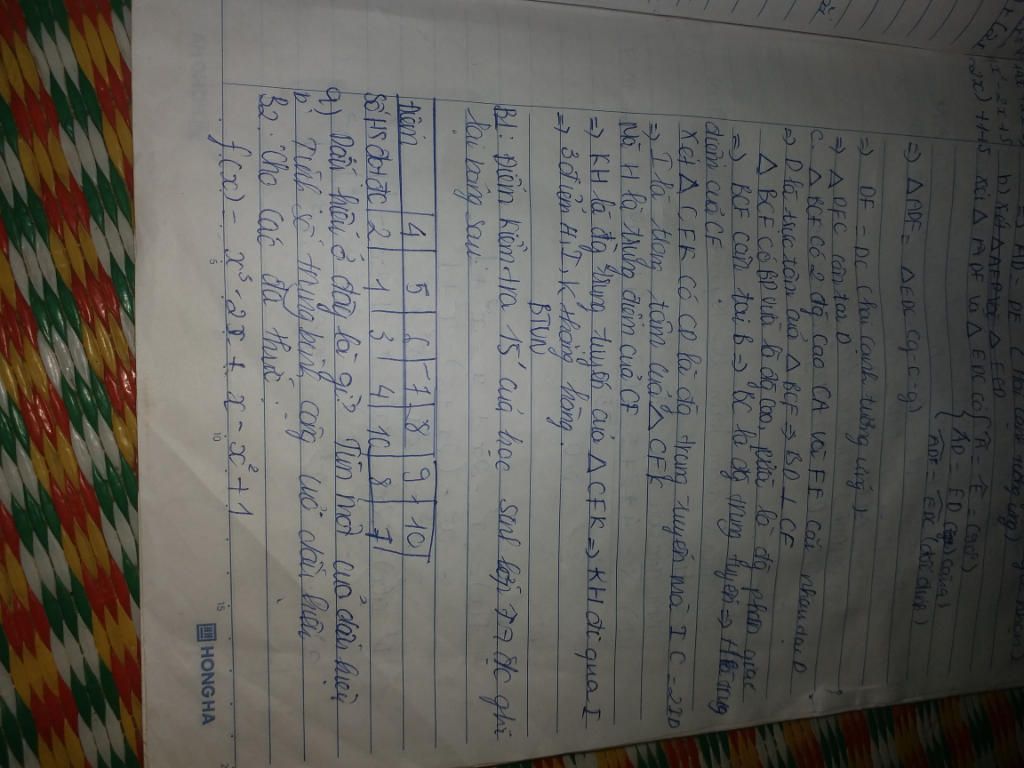 ⇒ AD = DE
b) Xét △
Xét △ ADF và △ EDC có { Â = Ê = (90°)
AD = ED (
ADF = EDC (đối đỉnh)
⇒ △ ADF = △ EDC (g-c-g)
⇒ DF = DC (hai cạnh tương ứng)
⇒ △ DFC cân tại D
C. △ BCF có 2 đg cao CA và FE cắt nhau tại D
⇒ D là trực tâm của △ BCF ⇒ BD ⊥ CF
△ BCF có BD vừa là đg cao, vừa là đg phân giác
⇒ BCF cân tại B ⇒ BK là đg trung tuyến ⇒ H là trung
điểm của CF
Xét △ CFK có CD là đg trung tuyến mà IC = 2ID
⇒ I là trọng tâm của △ CFK
Mà H là trung điểm của CF
⇒ KH là đg trung tuyến của △ CFK ⇒ KH đi qua I
⇒ 3 điểm H, I, K thẳng hàng.
BTVN
B1. Điểm kiểm tra 15' của học sinh lớp 7A đc ghi
lại bảng sau:
Điểm 4 5 6 7 8 9 10
Số HS đạt đc 2 1 3 4 10 8 7
a) Dấu hiệu ở đây là gì? Tìm mốt của dấu hiệu
b. Tính số trung bình cộng của dấu hiệu
B2. Cho các đa thức:
f(x) = x³ - 2x + x - x² + 1
HONGHA